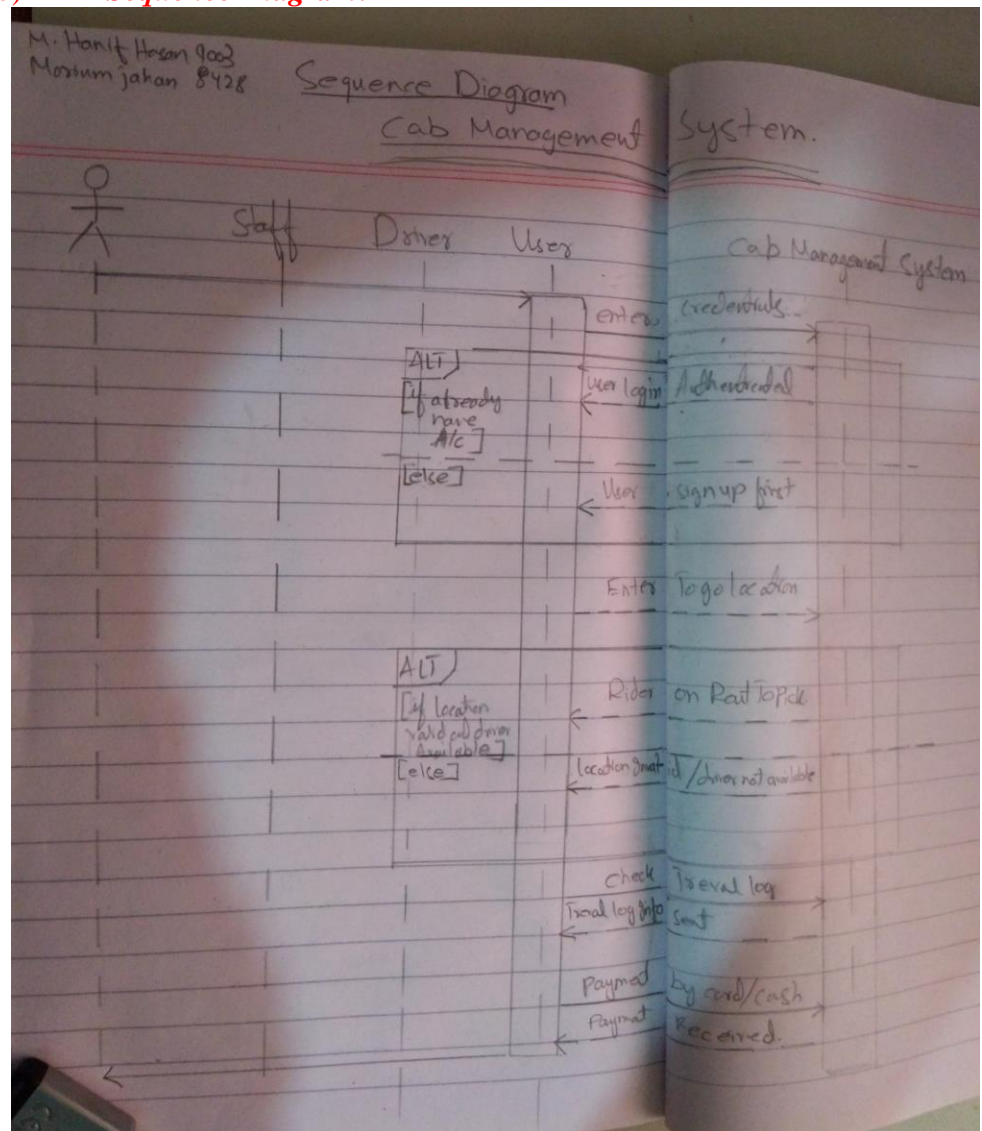 Sequence Diagram:
M. Hanif Hasan 9003
Marium jahan 8428
Sequence Diagram
Cab Management System.
Staff
Driver
User
Cab Management System
enters credentials
ALT
[if already
have
A/c]
User login Authenticated
[else]
User sign up first
Enter To go location
ALT
[if location
valid and driver
Available]
Rider on
[else]
location / driver not available
Check Treval log
log Info sent
Payment by card/cash
Payment Received.